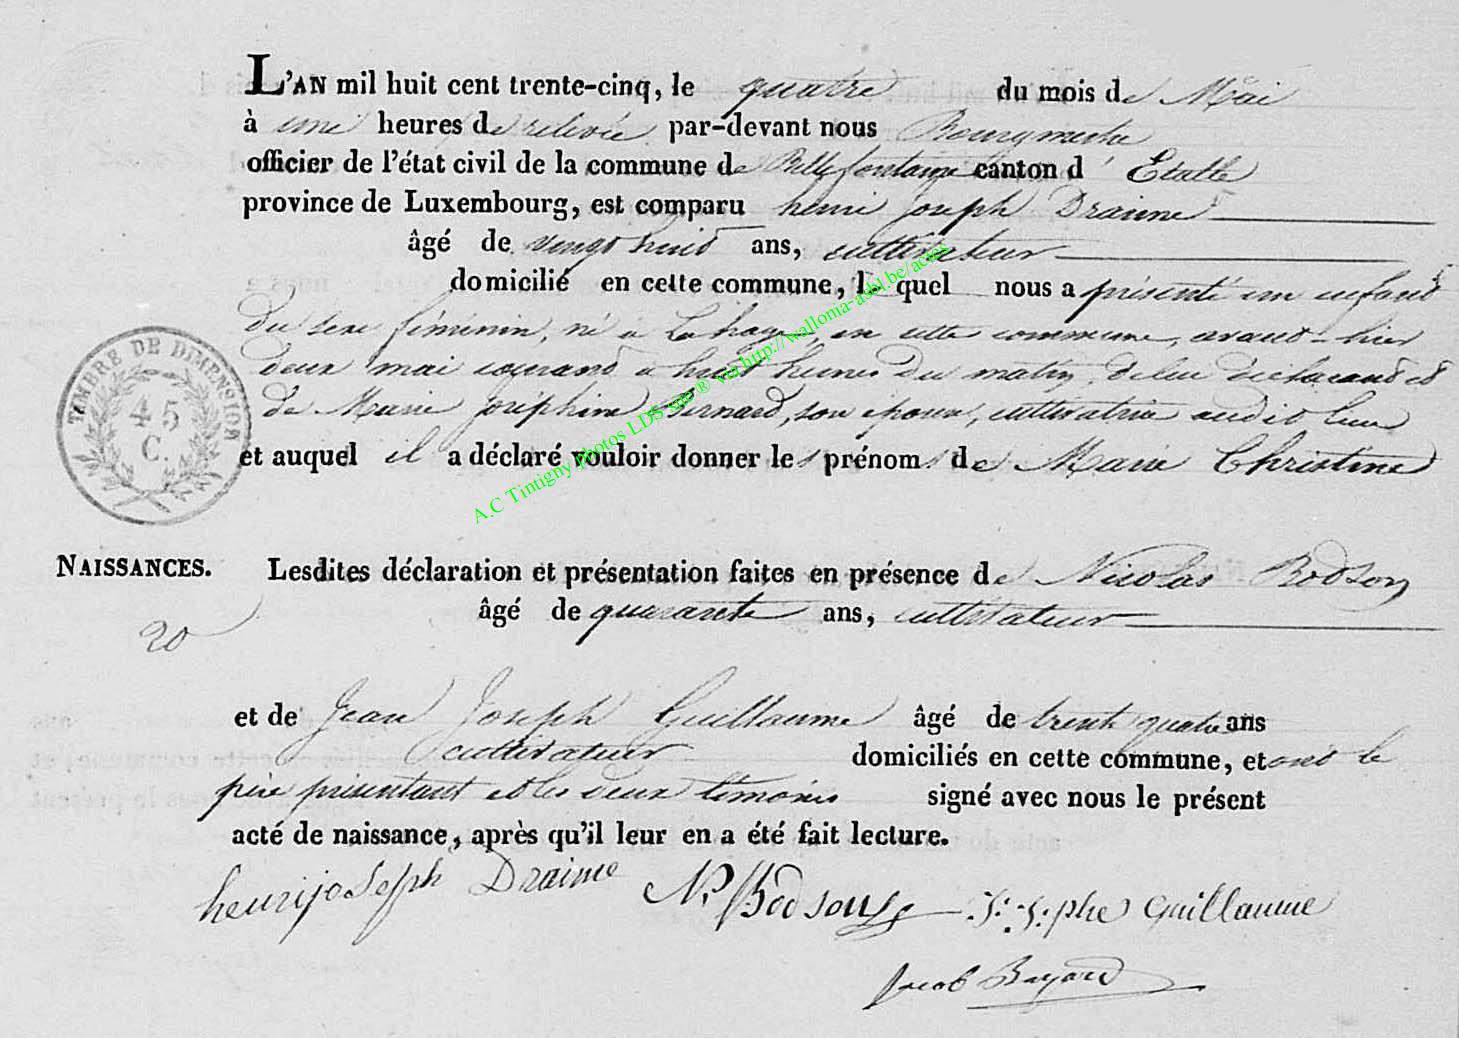 L'AN mil huit cent trente-cinq, le quatre du mois de Mai
à une heures de relevée par-devant nous Bourgmestre
officier de l'état civil de la commune de Bellefontaine canton d'Etalle
province de Luxembourg, est comparu henri joseph Draime
âgé de vingt huit ans, cultivateur
domicilié en cette commune, lequel nous a présenté un enfant
du sexe féminin, né à Lahage, en cette commune, avant-hier
deux mai courant à huit heures du matin, de lui déclarant et
de Marie Joséphine Bernard, son épouse, cultivatrice audit lieu
et auquel il a déclaré vouloir donner les prénoms de Marie Christine
TIMBRE DE DIMENSION
45
C.
A.C Tintigny photos LDS site® via http://wallonia-asbl.be/actes
NAISSANCES.
20
Lesdites déclaration et présentation faites en présence de Nicolas Bodson
âgé de quarante ans, cultivateur
et de Jean Joseph Guillaume âgé de trente quatre ans
cultivateur domiciliés en cette commune, et ont le
père présentant et les deux témoins signé avec nous le présent
acté de naissance, après qu'il leur en a été fait lecture.
henri joseph Draime N. Bodson J: J:phe Guillaume
Jacob Bayard